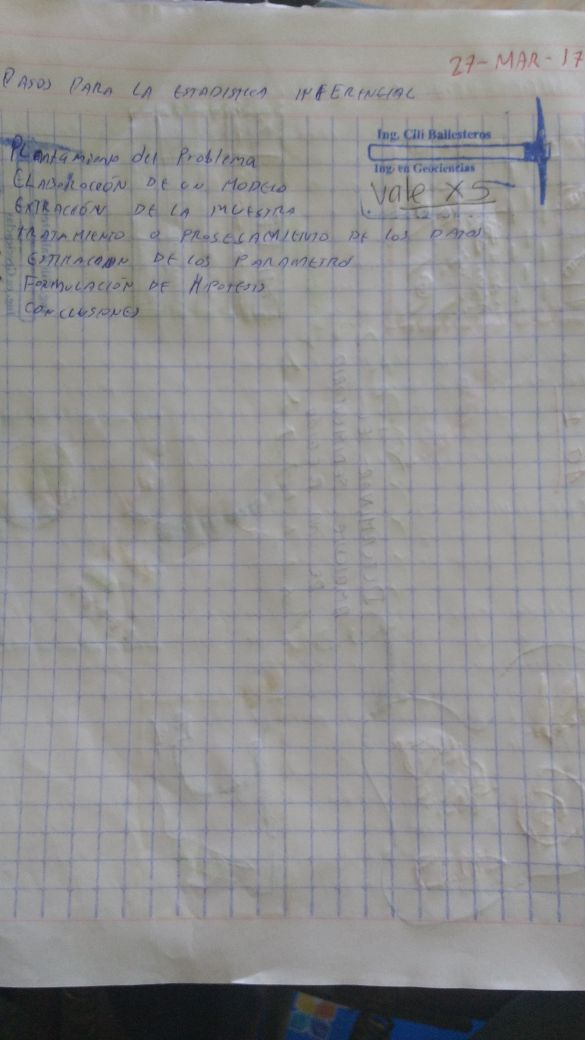 27-MAR-17
PASOS PARA LA ESTADISTICA INFERENCIAL
Ing. Cili Ballesteros
Ing. en Geociencias
Vale x5
Plantamiento del Problema
ELABOROCCIÓN DE UN MODELO
EXTRACCIÓN DE LA MUESTRA
TRATAMIENTO O PROSECAMIENTO DE LOS DATOS
ESTIMACION DE LOS PARAMETRO
FORMULACIÓN DE HIPOTESIS
CONCLUSIONES